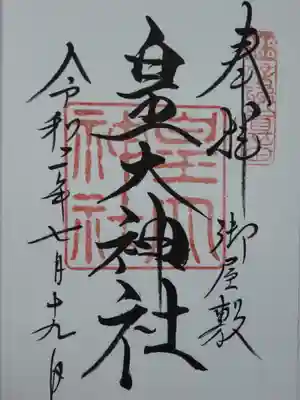 奉拝 御屋敷
皇大神社
令和二年七月十九日
皇大
神社